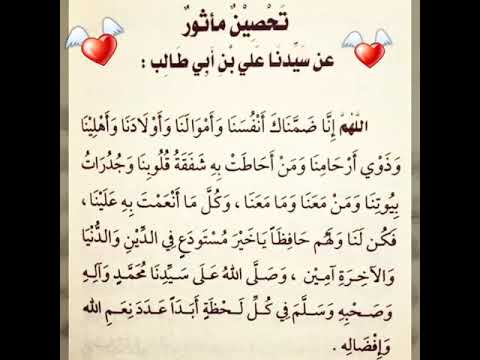 تَحْصِيْنٌ مأثورٌ
عن سَيِّدنَا عَلي بْنِ أبِي طَالِب :
اللَّهُمَّ إِنَّا ضَمَّنَاكَ أَنْفُسَنَا وَأَمْوَالَنَا وَأَوْلَادَنَا وَأَهْلِيْنَا
وَذَوِي أَرْحَامِنَا وَمَنْ أَحَاطَتْ بِهِ شَفَقَةُ قُلُوبِنَا وَجُدَرَاتُ
بِيُوتِنَا وَمَنْ مَعَنَا وَمَا مَعَنَا ، وَكُلَّ مَا أَنْعَمْتَ بِهِ عَلَيْنَا ،
فَكُن لَنَا وَلَهُم حَافِظَاً يَاخَيْرَ مُسْتَودَعٍ فِي الدِّيْنِ وَالدُّنْيَا
وَالآخِرَةِ آمِيْن ، وَصَلَّى اللهُ عَلَى سَيِّدِنَا مُحَمَّدٍ وَآلِهِ
وَصَحْبِهِ وَسَلَّمَ فِي كُلِّ لَحْظَةٍ أَبَدَاً عَدَدَ نِعَمِ الله
وَإِفْضَالِه .